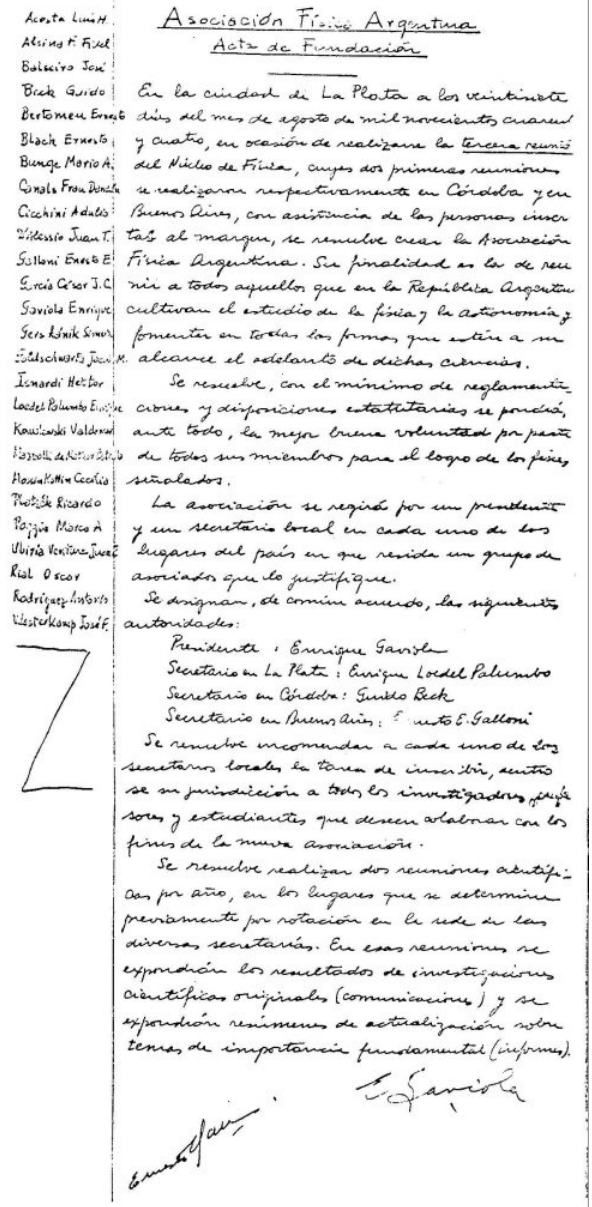 Asociación Física Argentina
Acta de Fundación
Acosta Luis H.
Alsina F. Fidel
Balseiro José
Beck Guido
Bertomeu Ernesto
Black Ernesto
Bunge Mario A.
Canals Frau Damián
Cicchini Adulio
D'Alessio Juan T.
Galloni Ernesto E
García César J.C.
Gaviola Enrique
Gershánik Simón
Goldschvartz José M.
Isnardi Héctor
Loedel Palumbo Enrique
Kowalewski Valdemar
Mossin Kotin Cecilia
Platzek Ricardo
Poggio Marco A
Rial Oscar
Rodríguez Antonio
Westerkamp José F.
En la ciudad de La Plata a los veintisiete
días del mes de agosto de mil novecientos cuaren
y cuatro, en ocasión de realizarse la tercera reunió
del Núcleo de Física, cuyas dos primeras reuniones
se realizaron respectivamente en Córdoba y en
Buenos Aires, con asistencia de las personas inscr
tas al margen, se resuelve crear la Asociación
Física Argentina. Su finalidad es la de reu
nir a todos aquellos que en la República Argentin
cultivan el estudio de la física y la astronomía y
fomentar en todas las formas que estén a su
alcance el adelanto de dichas ciencias.
Se resuelve, con el mínimo de reglamenta-
ciones y disposiciones estatutarias se pondrá,
ante todo, la mejor buena voluntad por parte
de todos sus miembros para el logro de los fines
señalados.
La asociación se regirá por un presidente
y un secretario local en cada uno de los
lugares del país en que resida un grupo de
asociados que lo justifique.
Se designan, de común acuerdo, las siguientes
autoridades:
Presidente : Enrique Gaviola
Secretario en La Plata : Enrique Loedel Palumbo
Secretario en Córdoba: Guido Beck
Secretario en Buenos Aires: Ernesto E. Galloni
Se resuelve encomendar a cada uno de los
secretarios locales la tarea de inscribir, dentro
de su jurisdicción a todos los investigadores, profe
sores y estudiantes que deseen colaborar con los
fines de la nueva asociación.
Se resuelve realizar dos reuniones científi-
cas por año, en los lugares que se determine
previamente por rotación en la sede de las
diversas secretarías. En esas reuniones se
expondrán los resultados de investigaciones
científicas originales (comunicaciones) y se
expondrán resúmenes de actualización sobre
temas de importancia fundamental (informes).
E. Gaviola
Ernesto